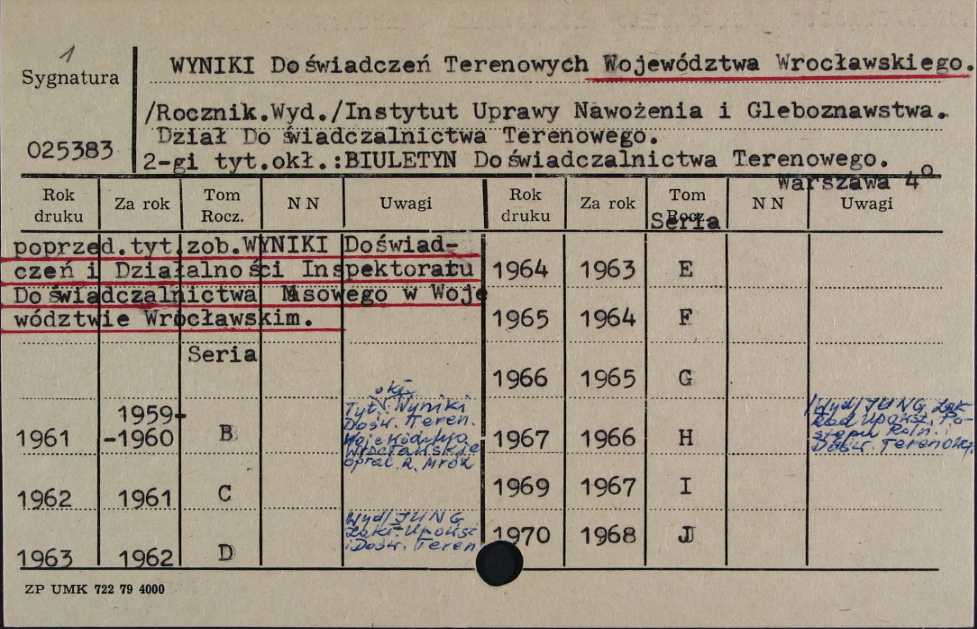 1
Sygnatura
025383
WYNIKI Doświadczeń Terenowych Województwa Wrocławskiego.
/Rocznik.Wyd./Instytut Uprawy Nawożenia i Gleboznawstwa.
Dział Doświadczalnictwa Terenowego.
2-gi tyt.okł.:BIULETYN Doświadczalnictwa Terenowego.
Warszawa 4°
Rok druku Za rok Tom Rocz. NN Uwagi Rok druku Za rok Tom Rocz. NN Uwagi
poprzed.tyt.zob.WYNIKI Doświad-
czeń i Działalności Inspektoratu
Doświadczalnictwa Masowego w Woje
wództwie Wrocławskim.
Seria
1961 1959-
-1960 B Tyt. okł. Wyniki
Dośw. Teren.
Województwa
Wrocławskie
oprac. R. Mróz
1962 1961 C
1963 1962 D Wyd/IUNG
i Dośw. Teren
Seria
1964 1963 E
1965 1964 F
1966 1965 G
1967 1966 H /Wyd/IUNG Zak-
ład Upowsz. Po-
stępu Roln. i
Dośw. Terenow.
1969 1967 I
1970 1968 J
ZP UMK 722 79 4000